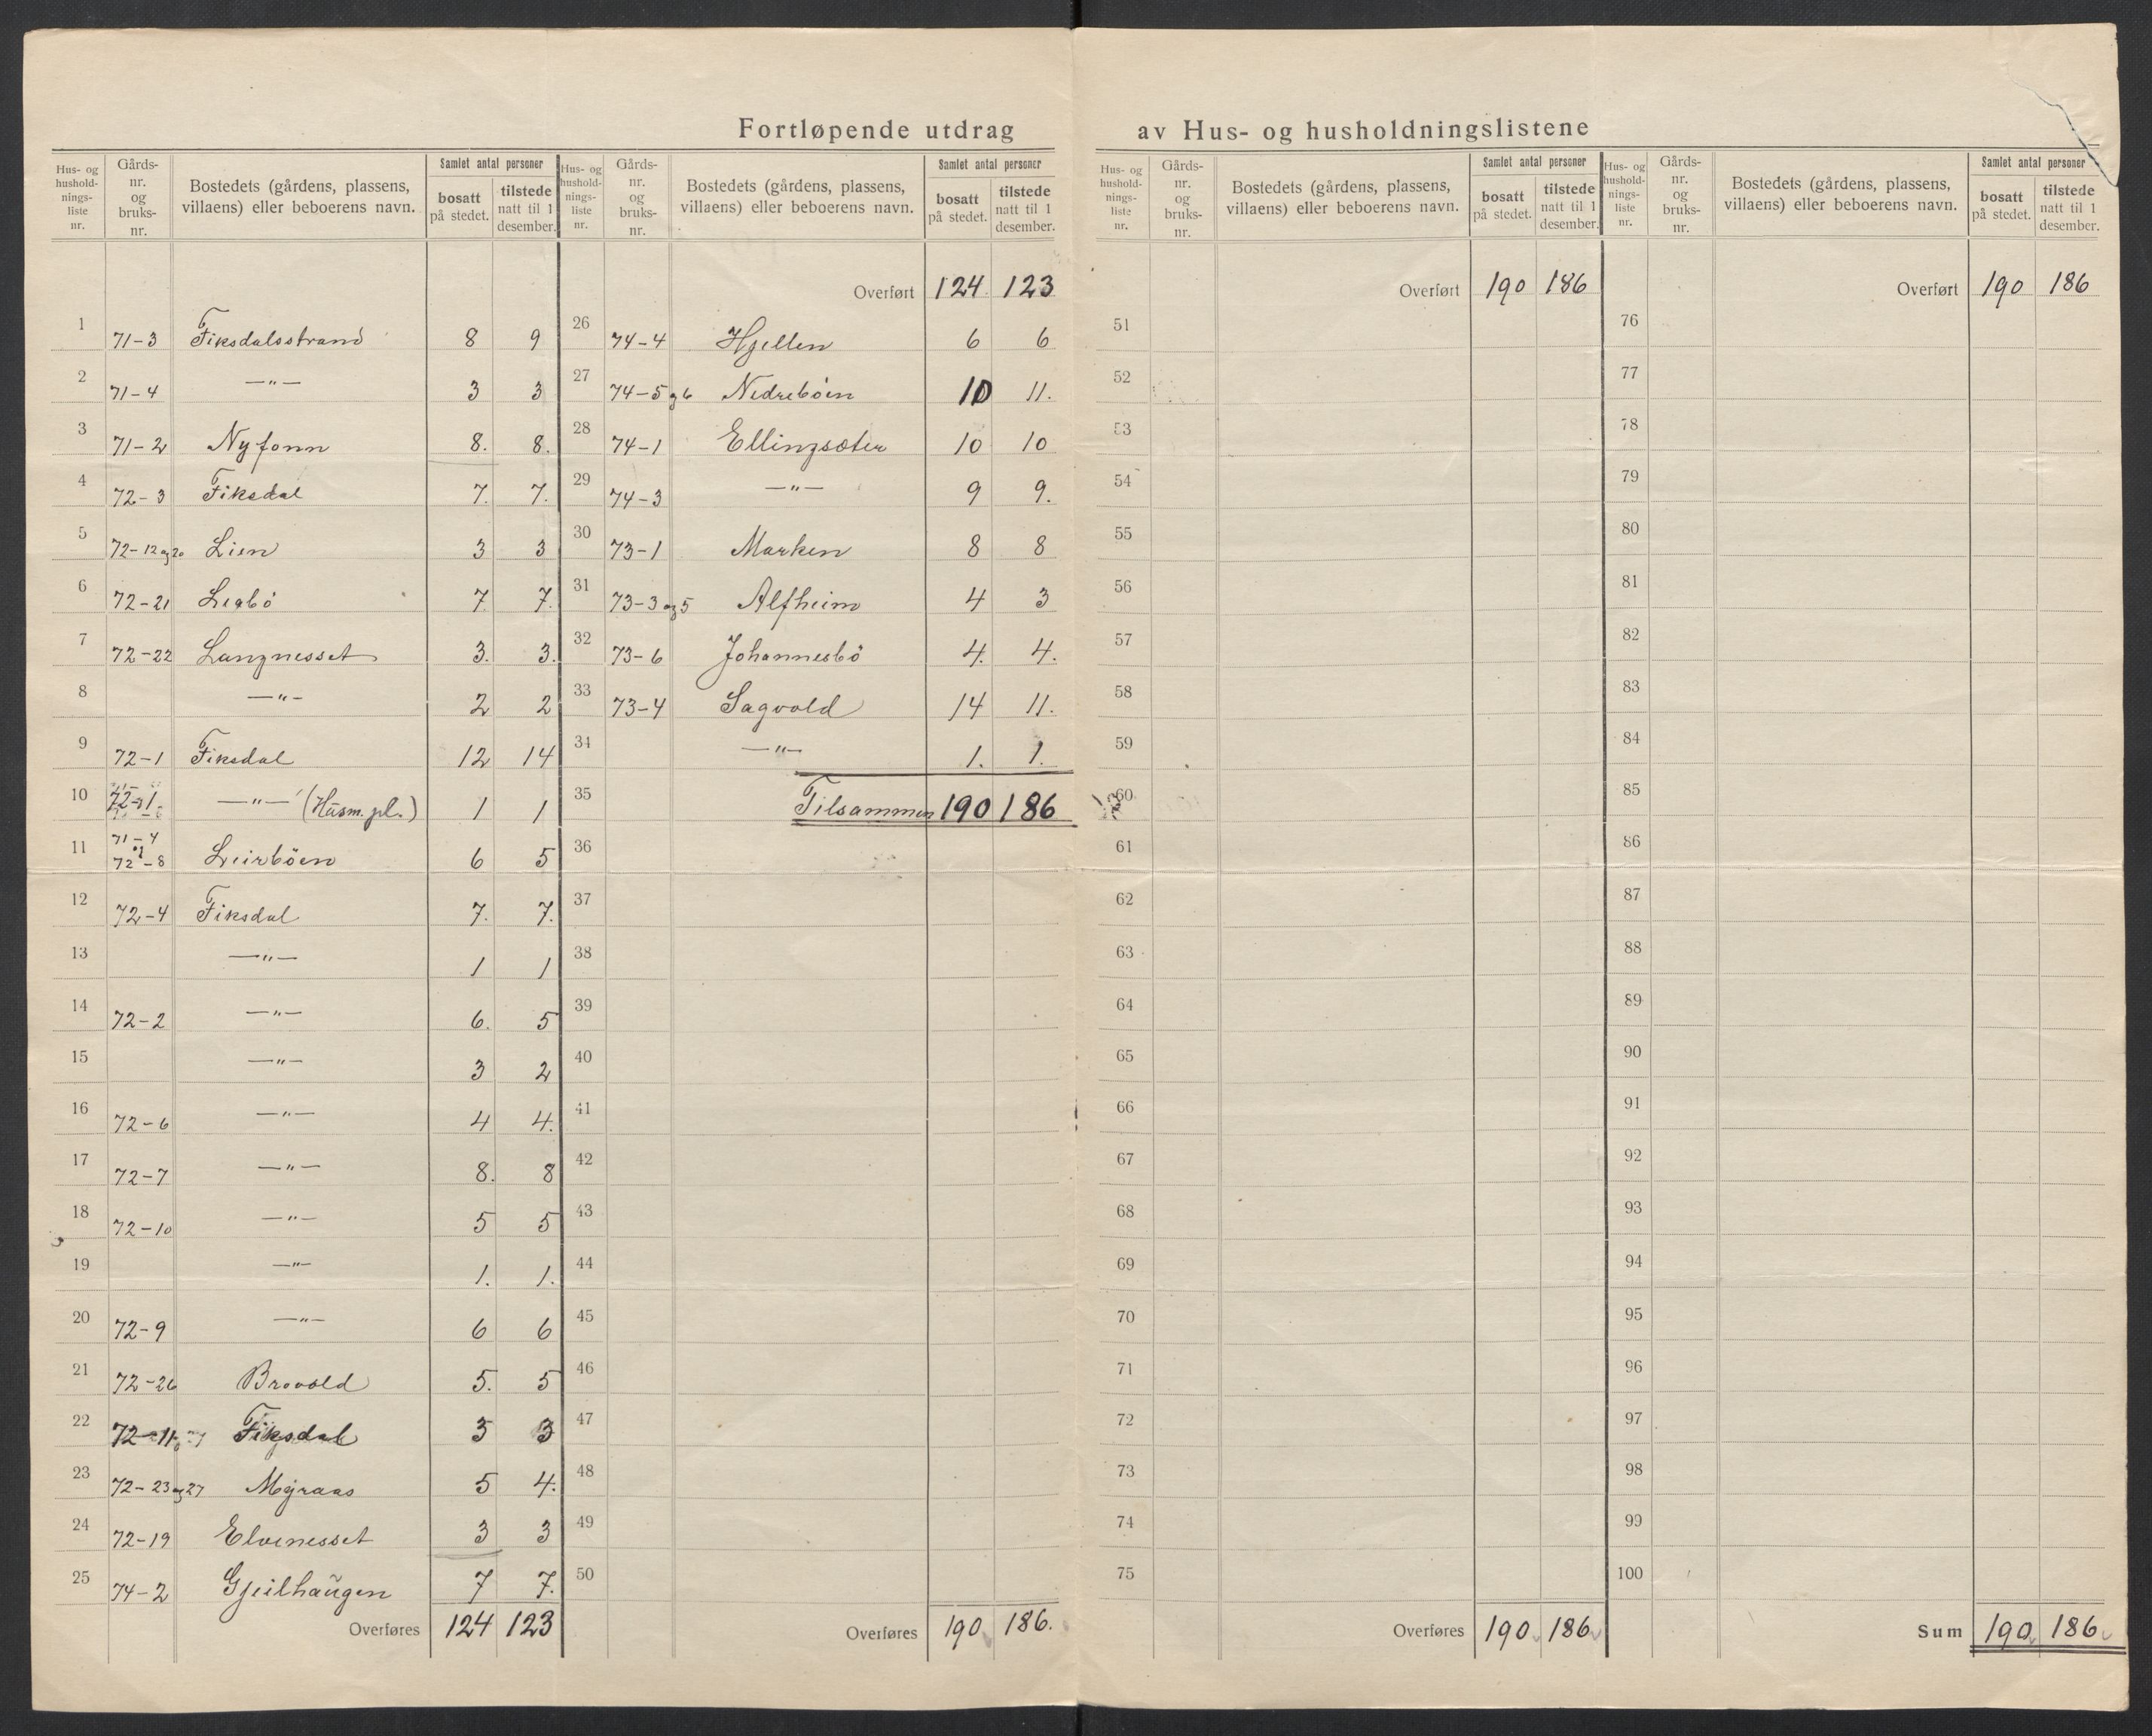 Fortløpende utdrag av Hus- og husholdningslistene
Hus- og hushold-nings-liste nr. Gårds-nr. og bruks-nr. Bostedets (gårdens, plassens, villaens) eller beboerens navn. Samlet antal personer bosatt på stedet. tilstede natt til 1 desember.
1 71-3 Fiksdalsstrand 8 9
2 71-4 —"— 3 3
3 71-2 Nyfonn 8. 8.
4 72-3 Fiksdal 7. 7.
5 72-12 og 20 Lien 3 3
6 72-21 Legbö 7 7.
7 72-22 Langnesset 3. 3.
8 —"— 2 2
9 72-1 Fiksdal 12 14
10 72-1. —"— (Husm. pl.) 1 1
11 71-4 og 72-8 Leirböen 6 5
12 72-4 Fiksdal 7. 7.
13 —"— 1 1
14 72-2 —"— 6. 5
15 —"— 3 2
16 72-6 —"— 4 4.
17 72-7 —"— 8. 8
18 72-10 —"— 5 5
19 —"— 1. 1.
20 72-9 —"— 6 6
21 72-26 Brovold 5. 5
22 72-11 Fiksdal 3 3
23 72-23 og 27 Mygraas 5 4.
24 72-19 Elvenesset 3 3
25 74-2 Gjeilhaugen 7 7.
Overføres 124 123
Hus- og hushold-nings-liste nr. Gårds-nr. og bruks-nr. Bostedets (gårdens, plassens, villaens) eller beboerens navn. Samlet antal personer bosatt på stedet. tilstede natt til 1 desember.
Overført 124 123
26 74-4 Hjellen 6 6
27 74-5 og 6 Nedreböen 10 11.
28 74-1 Ellingsæter 10 10
29 74-3 —"— 9 9.
30 73-1 Marken 8 8
31 73-3 og 5 Alfheim 4 3
32 73-6 Johannesbö 4. 4.
33 73-4 Sagvold 14 11.
34 —"— 1. 1.
35 Tilsammen 190 186
36
37
38
39
40
41
42
43
44
45
46
47
48
49
50
Overføres 190 186.
Hus- og hushold-nings-liste nr. Gårds-nr. og bruks-nr. Bostedets (gårdens, plassens, villaens) eller beboerens navn. Samlet antal personer bosatt på stedet. tilstede natt til 1 desember.
Overført 190 186
51
52
53
54
55
56
57
58
59
60
61
62
63
64
65
66
67
68
69
70
71
72
73
74
75
Overføres 190 186
Hus- og hushold-nings-liste nr. Gårds-nr. og bruks-nr. Bostedets (gårdens, plassens, villaens) eller beboerens navn. Samlet antal personer bosatt på stedet. tilstede natt til 1 desember.
Overført 190 186
76
77
78
79
80
81
82
83
84
85
86
87
88
89
90
91
92
93
94
95
96
97
98
99
100
Sum 190 186